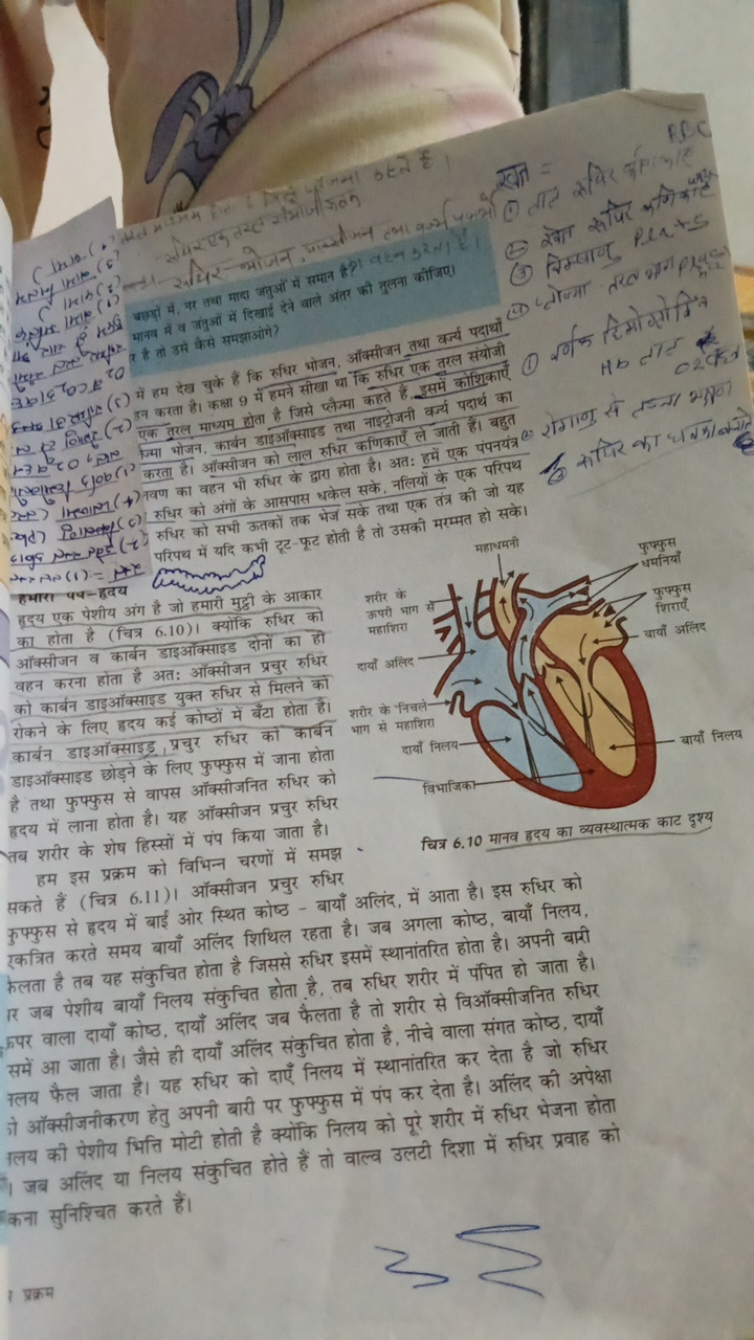 RBC
रक्त =
① लाल रूधिर कणिकाएं
② श्वेत रूधिर कणिकाएं
③ बिम्बाणु
बछड़ों में, नर तथा मादा जंतुओं में समान है?
मानव में व जंतुओं में दिखाई देने वाले अंतर की तुलना कीजिए।
र है तो उसे कैसे समझाओगे?
में हम देख चुके हैं कि रुधिर भोजन, ऑक्सीजन तथा वर्ज्य पदार्थों
हन करता है। कक्षा 9 में हमने सीखा था कि रुधिर एक तरल संयोजी
एक तरल माध्यम होता है जिसे प्लैज्मा कहते हैं, इसमें कोशिकाएँ
ज्मा भोजन, कार्बन डाइऑक्साइड तथा नाइट्रोजनी वर्ज्य पदार्थ का
करता है। ऑक्सीजन को लाल रुधिर कणिकाएँ ले जाती हैं। बहुत
नवण का वहन भी रुधिर के द्वारा होता है। अतः हमें एक पंपनयंत्र
रुधिर को अंगों के आसपास धकेल सके, नलियों के एक परिपथ
रुधिर को सभी ऊतकों तक भेज सके तथा एक तंत्र की जो यह
परिपथ में यदि कभी टूट-फूट होती है तो उसकी मरम्मत हो सके।
हमारा पंप-हृदय
हृदय एक पेशीय अंग है जो हमारी मुट्ठी के आकार
का होता है (चित्र 6.10)। क्योंकि रुधिर को
ऑक्सीजन व कार्बन डाइऑक्साइड दोनों का ही
वहन करना होता है अतः ऑक्सीजन प्रचुर रुधिर
को कार्बन डाइऑक्साइड युक्त रुधिर से मिलने को
रोकने के लिए हृदय कई कोष्ठों में बँटा होता है।
कार्बन डाइऑक्साइड प्रचुर रुधिर को कार्बन
डाइऑक्साइड छोड़ने के लिए फुफ्फुस में जाना होता
है तथा फुफ्फुस से वापस ऑक्सीजनित रुधिर को
हृदय में लाना होता है। यह ऑक्सीजन प्रचुर रुधिर
तब शरीर के शेष हिस्सों में पंप किया जाता है।
हम इस प्रक्रम को विभिन्न चरणों में समझ
सकते हैं (चित्र 6.11)। ऑक्सीजन प्रचुर रुधिर
फुफ्फुस से हृदय में बाईं ओर स्थित कोष्ठ – बायाँ अलिंद, में आता है। इस रुधिर को
एकत्रित करते समय बायाँ अलिंद शिथिल रहता है। जब अगला कोष्ठ, बायाँ निलय,
फैलता है तब यह संकुचित होता है जिससे रुधिर इसमें स्थानांतरित होता है। अपनी बारी
र जब पेशीय बायाँ निलय संकुचित होता है, तब रुधिर शरीर में पंपित हो जाता है।
ऊपर वाला दायाँ कोष्ठ, दायाँ अलिंद जब फैलता है तो शरीर से विऑक्सीजनित रुधिर
समें आ जाता है। जैसे ही दायाँ अलिंद संकुचित होता है, नीचे वाला संगत कोष्ठ, दायाँ
नलय फैल जाता है। यह रुधिर को दाएँ निलय में स्थानांतरित कर देता है जो रुधिर
ो ऑक्सीजनीकरण हेतु अपनी बारी पर फुफ्फुस में पंप कर देता है। अलिंद की अपेक्षा
नलय की पेशीय भित्ति मोटी होती है क्योंकि निलय को पूरे शरीर में रुधिर भेजना होता
। जब अलिंद या निलय संकुचित होते हैं तो वाल्व उलटी दिशा में रुधिर प्रवाह को
कना सुनिश्चित करते हैं।
महाधमनी
फुफ्फुस
धमनियाँ
शरीर के
ऊपरी भाग से
महाशिरा
फुफ्फुस
शिराएँ
बायाँ अलिंद
दायाँ अलिंद
शरीर के निचले
भाग से महाशिरा
दायाँ निलय
बायाँ निलय
विभाजिका
चित्र 6.10 मानव हृदय का व्यवस्थात्मक काट दृश्य
प्रक्रम